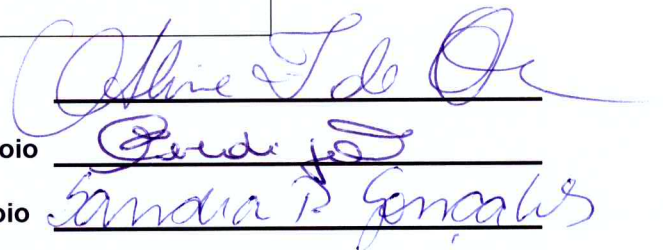 Aline T de O
oio
oio Sandra P Gonçalves